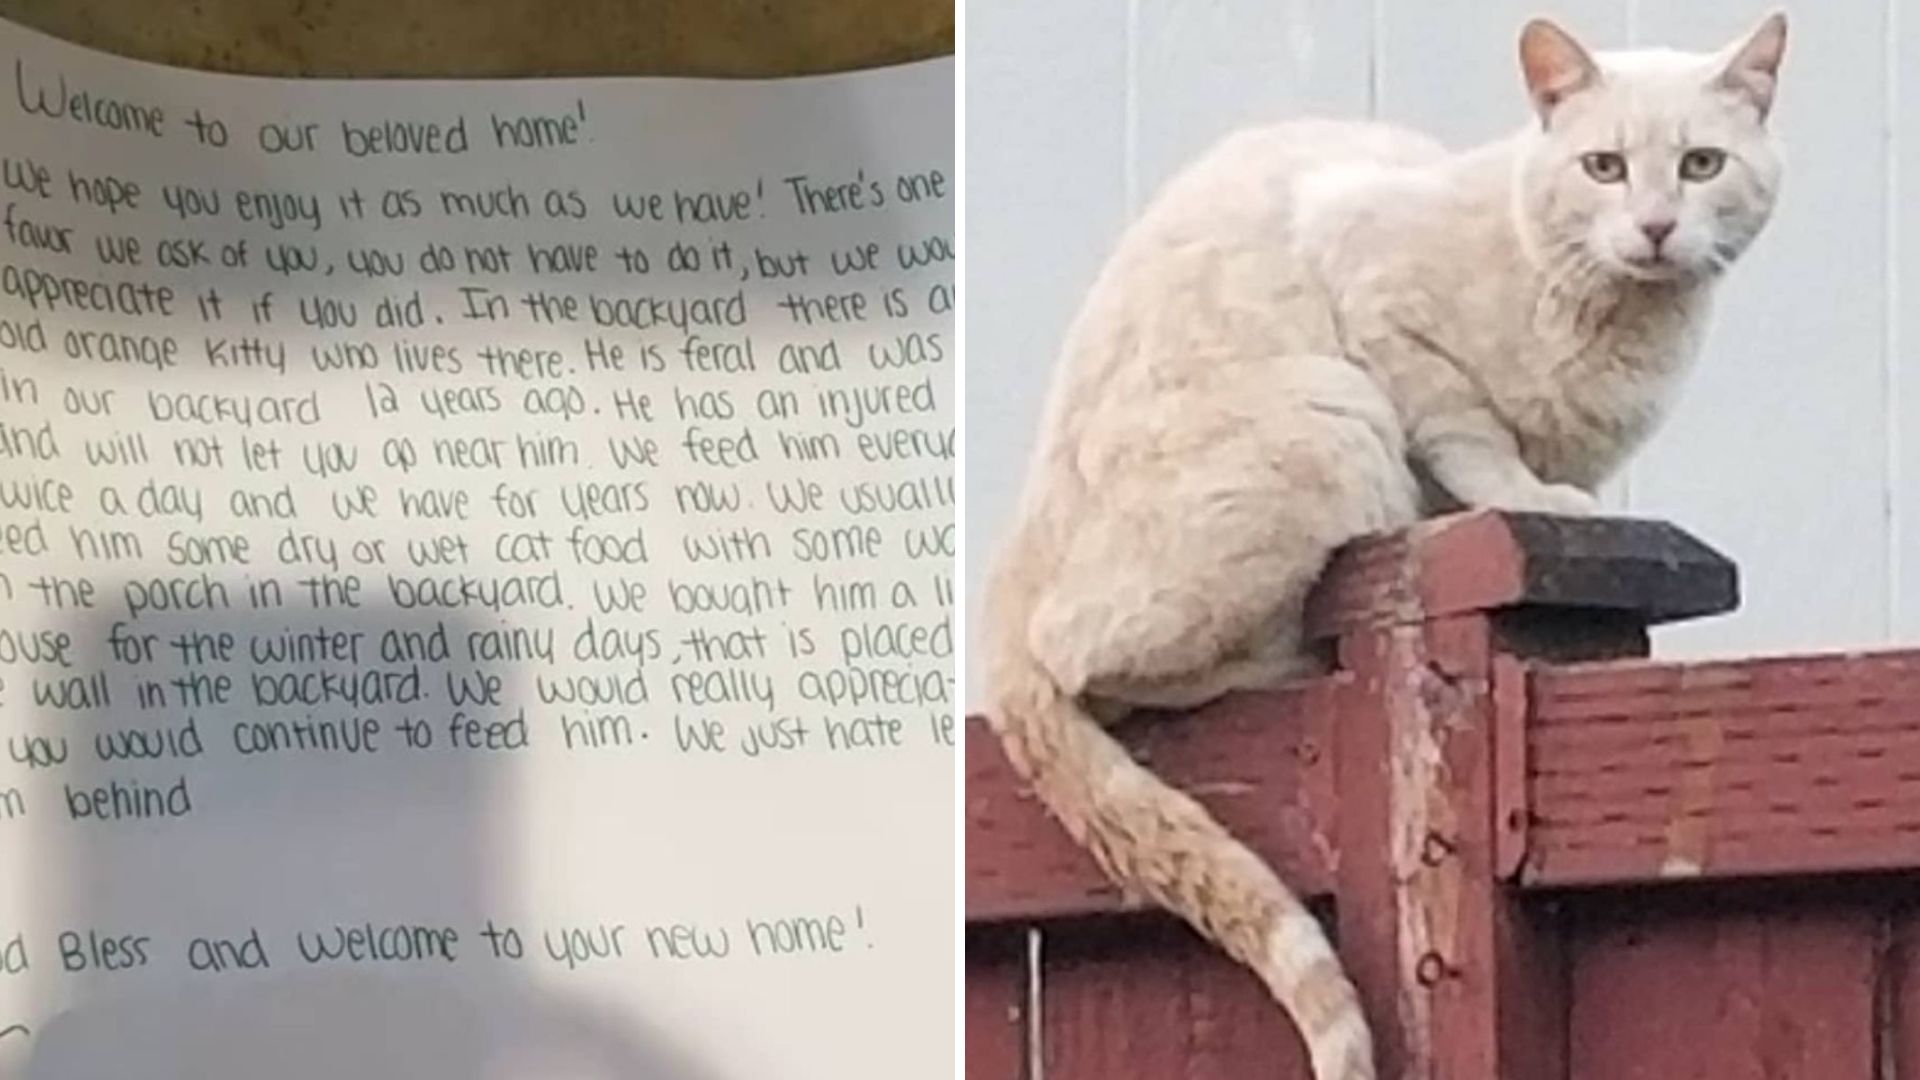 Welcome to our beloved home!
We hope you enjoy it as much as we have! There's one
favor we ask of you, you do not have to do it, but we wou
appreciate it if you did. In the backyard there is a
old orange kitty who lives there. He is feral and was
in our backyard 12 years ago. He has an injured
and will not let you go near him. We feed him every
wice a day and we have for years now. We usuall
eed him some dry or wet cat food with some wa
n the porch in the backyard. We bought him a li
ouse for the winter and rainy days, that is placed
e wall in the backyard. We would really apprecia
you would continue to feed him. We just hate le
m behind
d Bless and welcome to your new home!